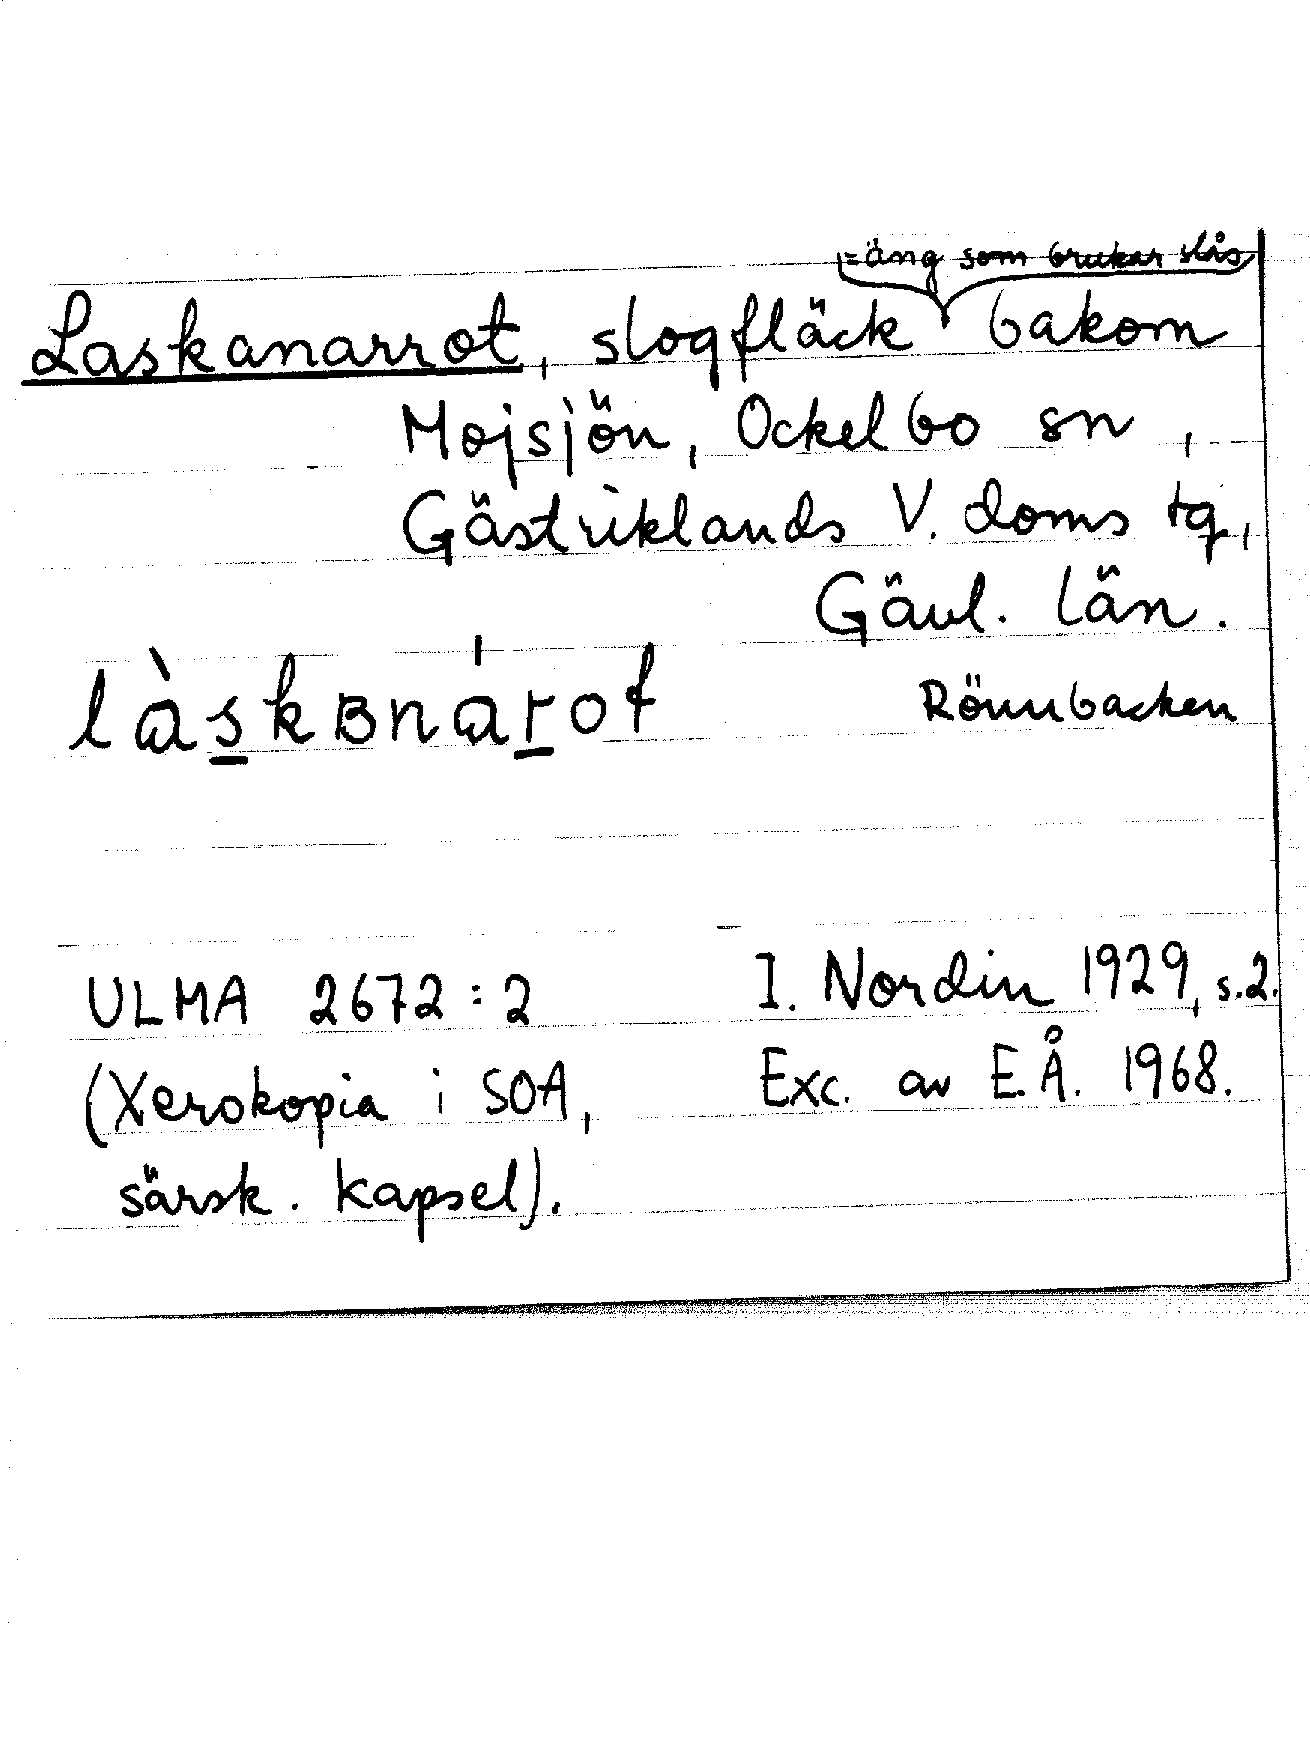 =äng som brukar slås
Laskanarrot, slogfläck bakom
Mojsjön, Ockelbo sn,
Gästriklands V. doms tg,
Gävl. län.
làskʙnárot Rönnbacken
ULMA 2672:2 I. Nordin 1929, s.2.
(Xerokopia i SOA, Exc. av E.Å. 1968.
särsk. kapsel).